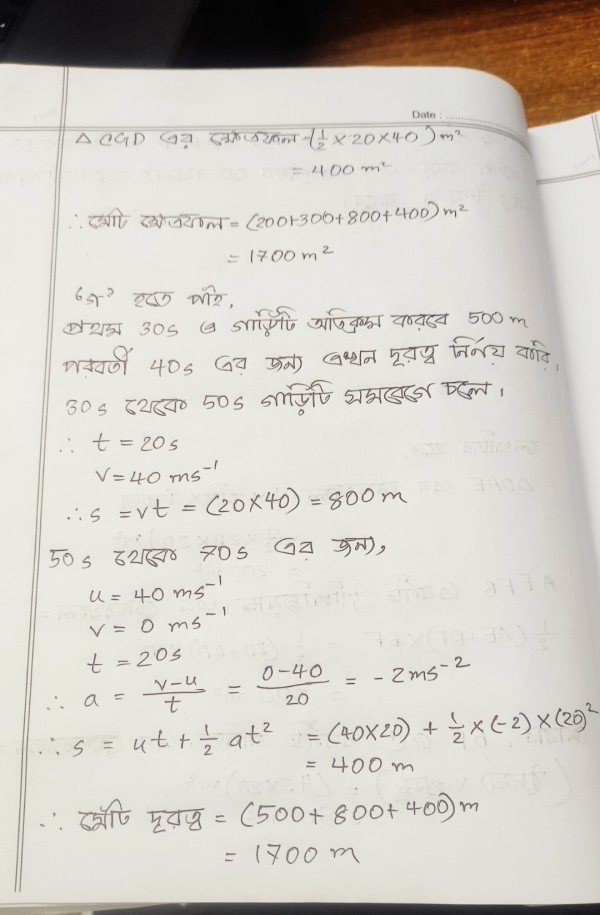 Date : ....................
Δ CGD এর ক্ষেত্রফল = (1/2 × 20 × 40) m²
= 400 m²
∴ মোট ক্ষেত্রফল = (200+300+800+400) m²
= 1700 m²
'গ' হতে পাই,
প্রথম 30s এ গাড়িটি অতিক্রম করবে 500 m
পরবর্তী 40s এর জন্য এখন দূরত্ব নির্ণয় করি,
30s থেকে 50s গাড়িটি সমবেগে চলে।
∴ t = 20s
v = 40 ms⁻¹
∴ s = vt = (20×40) = 800 m
50s থেকে 70s এর জন্য,
u = 40 ms⁻¹
v = 0 ms⁻¹
t = 20s
∴ a = (v-u)/t = (0-40)/20 = -2ms⁻²
∴ s = ut + 1/2 at² = (40×20) + 1/2 × (-2) × (20)²
= 400 m
∴ মোট দূরত্ব = (500 + 800 + 400) m
= 1700 m